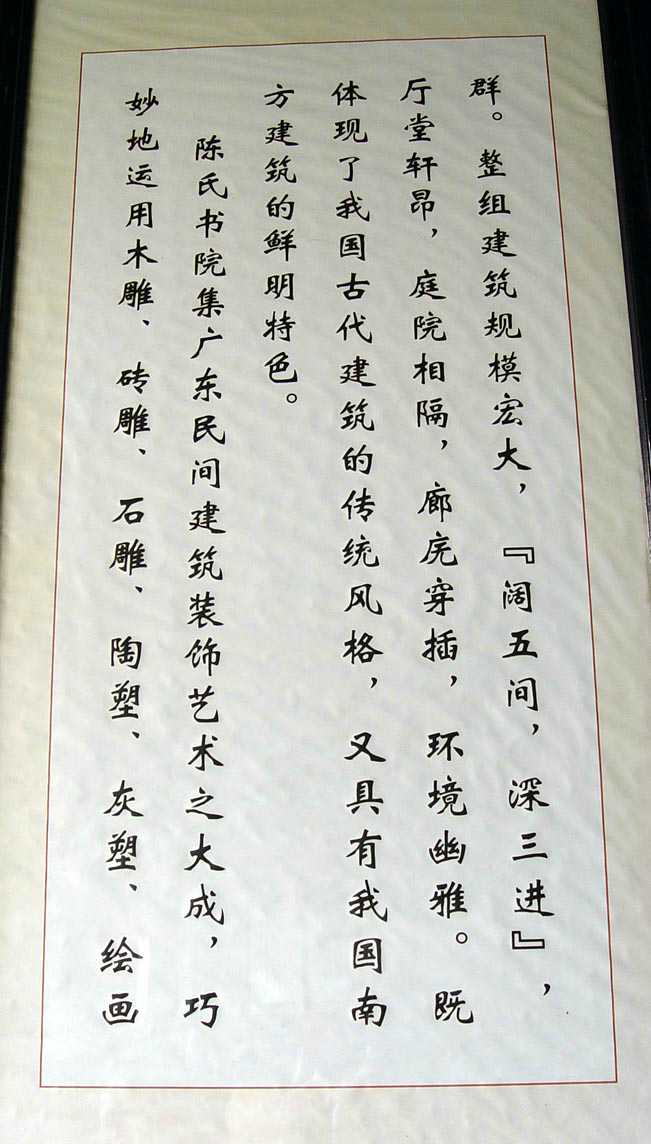 群。整组建筑规模宏大，『阔五间，深三进』，
厅堂轩昂，庭院相隔，廊庑穿插，环境幽雅。既
体现了我国古代建筑的传统风格，又具有我国南
方建筑的鲜明特色。
陈氏书院集广东民间建筑装饰艺术之大成，巧
妙地运用木雕、砖雕、石雕、陶塑、灰塑、绘画